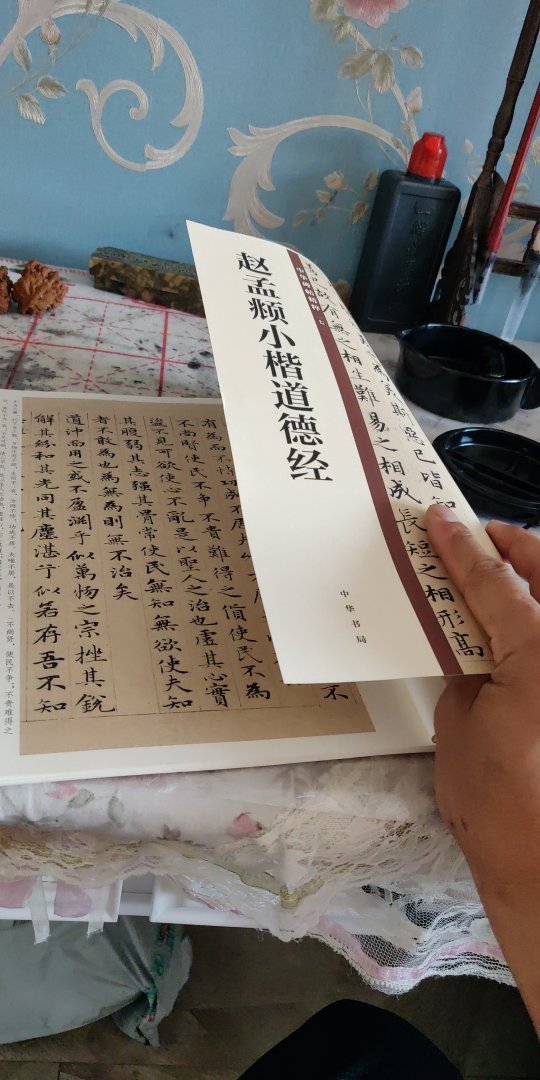 赵孟𫖯小楷道德经
中华书局
斯惡已皆知
故有無之相生難易之相成長短之相形高
有為而不恃功成不居
不尚賢使民不爭不貴難得之貨使民不為
盜不見可欲使心不亂是以聖人之治也虛其心實
其腹弱其志强其骨常使民無知無欲使夫知
者不敢為也為無為則無不治矣
道沖而用之或不盈淵乎似萬物之宗挫其銳
解其紛和其光同其塵湛乎似若存吾不知
不居，夫唯不居，是以不去。不尚贤，使民不争；不贵难得之